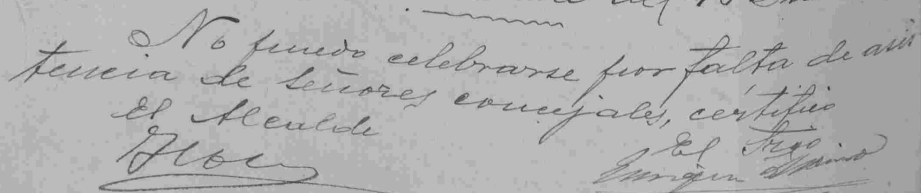 No puedo celebrarse por falta de asis
tencia de señores concejales, certifico
El Alcalde
El Srio
Enrique